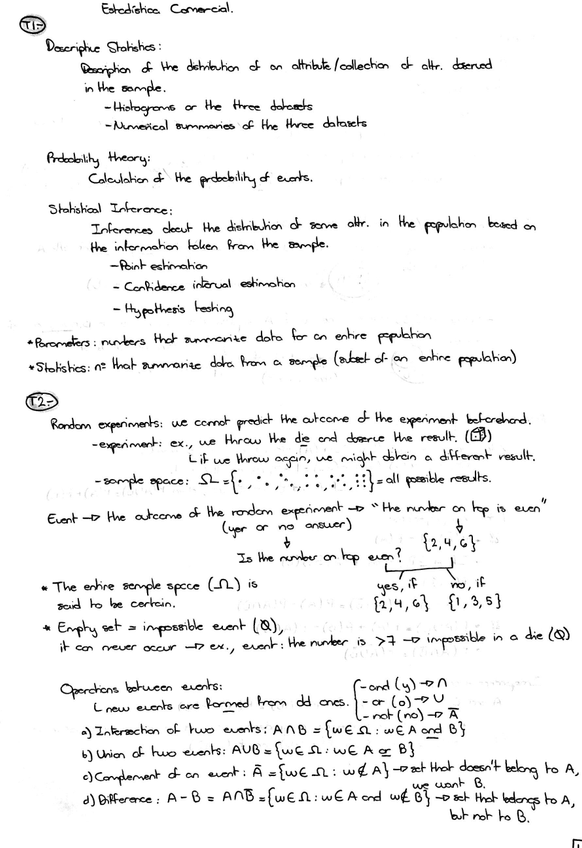 Estadística Comercial.
T1:-
Descriptive Statistics:
Description of the distribution of an attribute/collection of attr. observed
in the sample.
- Histograms or the three datasets
- Numerical summaries of the three datasets
Probability theory:
Calculation of the probability of events.
Statistical Inference:
Inferences about the distribution of some attr. in the population based on
the information taken from the sample.
- Point estimation
- Confidence interval estimation
- Hypothesis testing
* Parameters: numbers that summarize data for an entire population
* Statistics: nº that summarize data from a sample (subset of an entire population)
T2:-
Random experiments: we cannot predict the outcome of the experiment beforehand.
- experiment: ex., we throw the die and observe the result. (🎲)
└ if we throw again, we might obtain a different result.
- sample space: Ω = {⚀, ⚁, ⚂, ⚃, ⚄, ⚅} = all possible results.
Event → the outcome of the random experiment → "the number on top is even"
(yer or no answer) ↓ {2, 4, 6}
↓
Is the number on top even?
* The entire sample space (Ω) is yes, if no, if
said to be certain. {2, 4, 6} {1, 3, 5}
* Empty set = impossible event (∅),
it can never occur → ex., event: the number is >7 → impossible in a die (∅)
Operations between events: { - and (y) → ∩
└ new events are formed from old ones. - or (o) → ∪
- not (no) → Ā
a) Intersection of two events: A∩B = {w∈Ω: w∈A and B}
b) Union of two events: A∪B = {w∈Ω: w∈A or B}
c) Complement of an event: Ā = {w∈Ω: w∉A} → set that doesn't belong to A,
we want B.
d) Difference: A - B = A∩B̄ = {w∈Ω: w∈A and w∉B} → set that belongs to A,
but not to B.